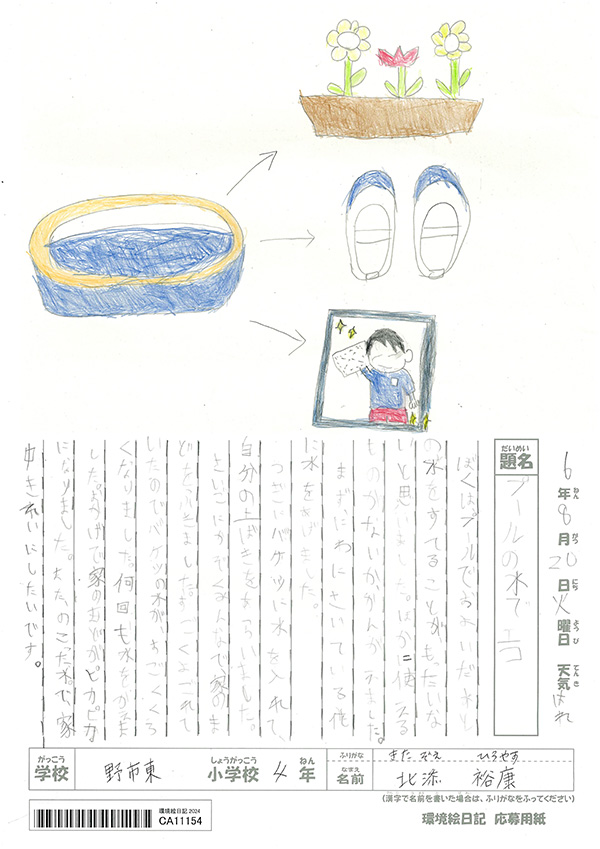 6年8月20日火曜日 天気はれ
ねん がつ にち ようび てんき
だいめい
題名 プールの水でエコ
ぼくはプールでおよいだあと
の水をすてることがもったいな
いと思いました。ほかに使える
ものがないかかんがえました。
まず、にわにさいている花
に水をあげました。
つぎにバケツに水を入れて、
自分の上ばきをあらいました。
さいごにかぞくみんなで家のま
どをふきました。すごくよごれて
いたのでバケツの水が、すごくくろ
くなりました。何回も水をかえま
した。おかげで家のまどがピカピカ
になりました。また、のこった水で、家
中きれいにしたいです。
がっこう しょうがっこう ねん ふりがな きたぞえ ひろやす
学校 野市東 小学校 4年 なまえ 名前 北添 裕康
(漢字で名前を書いた場合は、ふりがなをふってください)
環境絵日記 2024
CA11154
環境絵日記 応募用紙